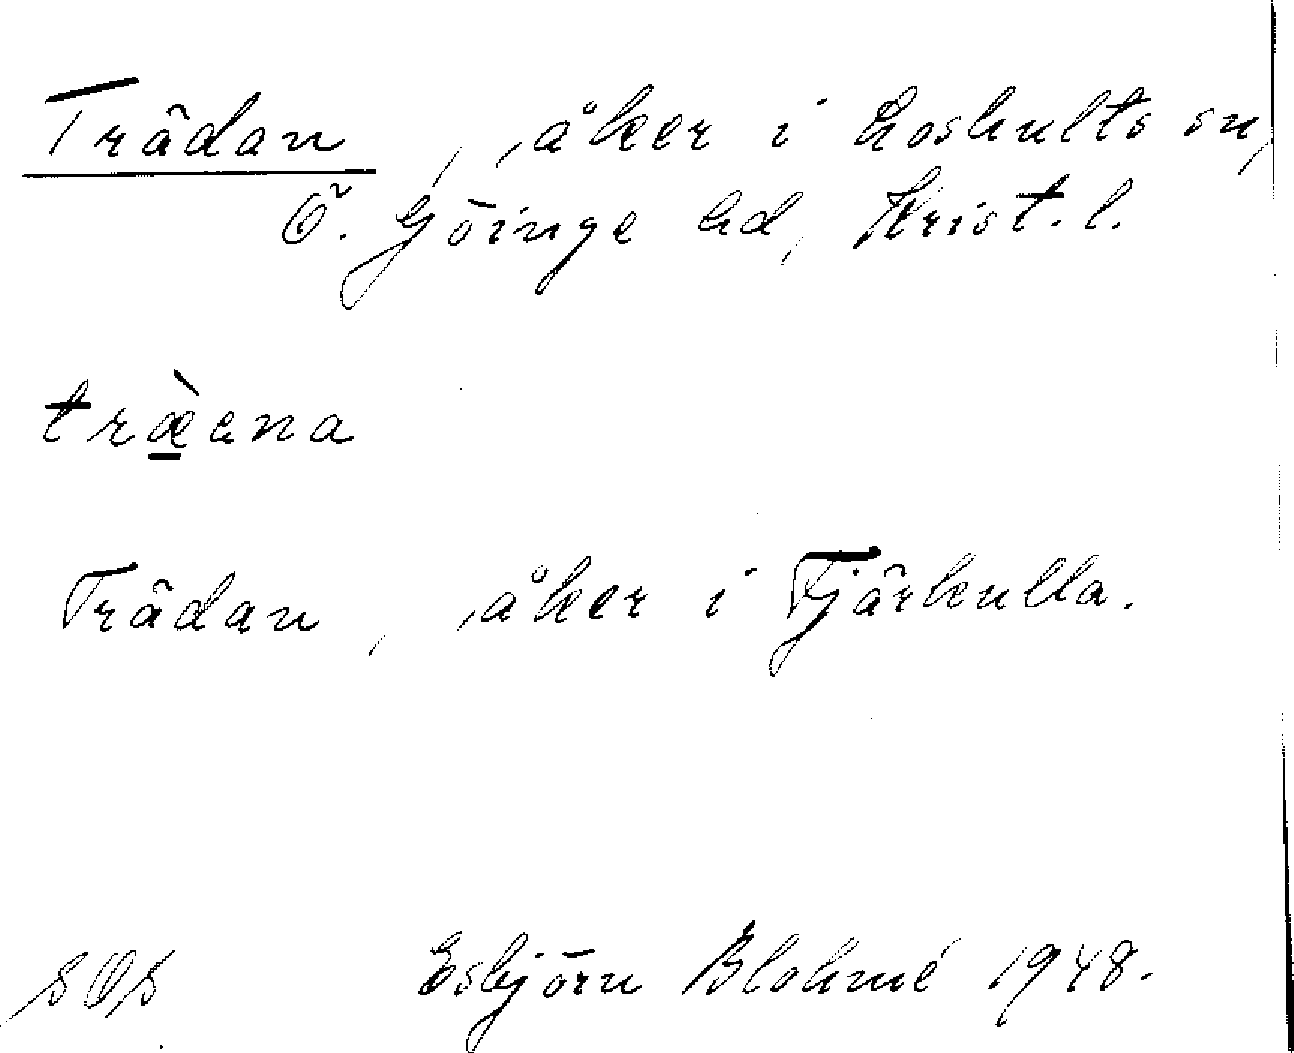 Trädan, åker i Loshults sn,
Ö. Göinge hd, Krist. l.
træ̀ena
Trädan, åker i Tjärkulla.
SOS Esbjörn Blohmé 1948.